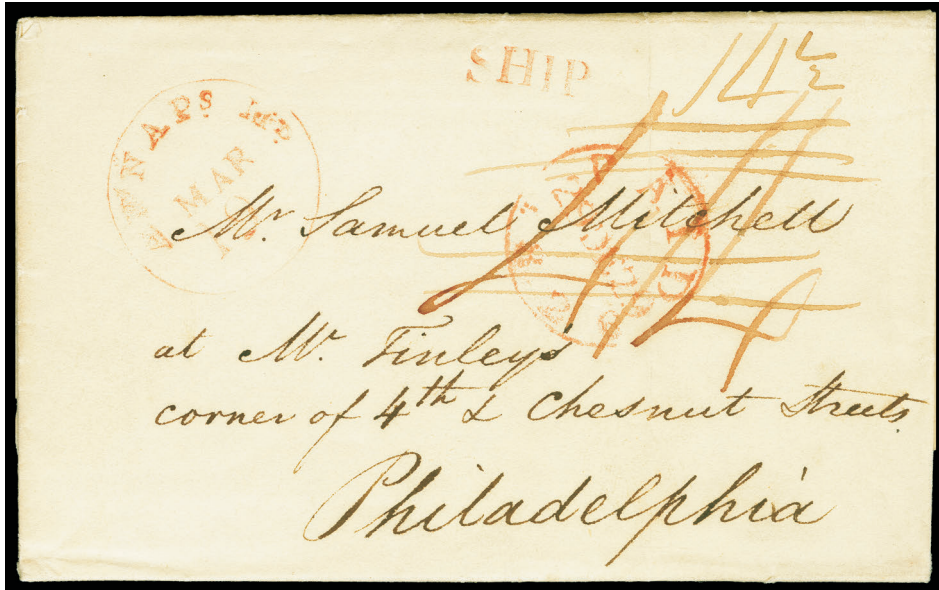 SHIP
14½
ANNAPS Md.
MAR
Mr. Samuel Mitchell
at Mr. Finley's
corner of 4th & Chesnut Streets.
Philadelphia